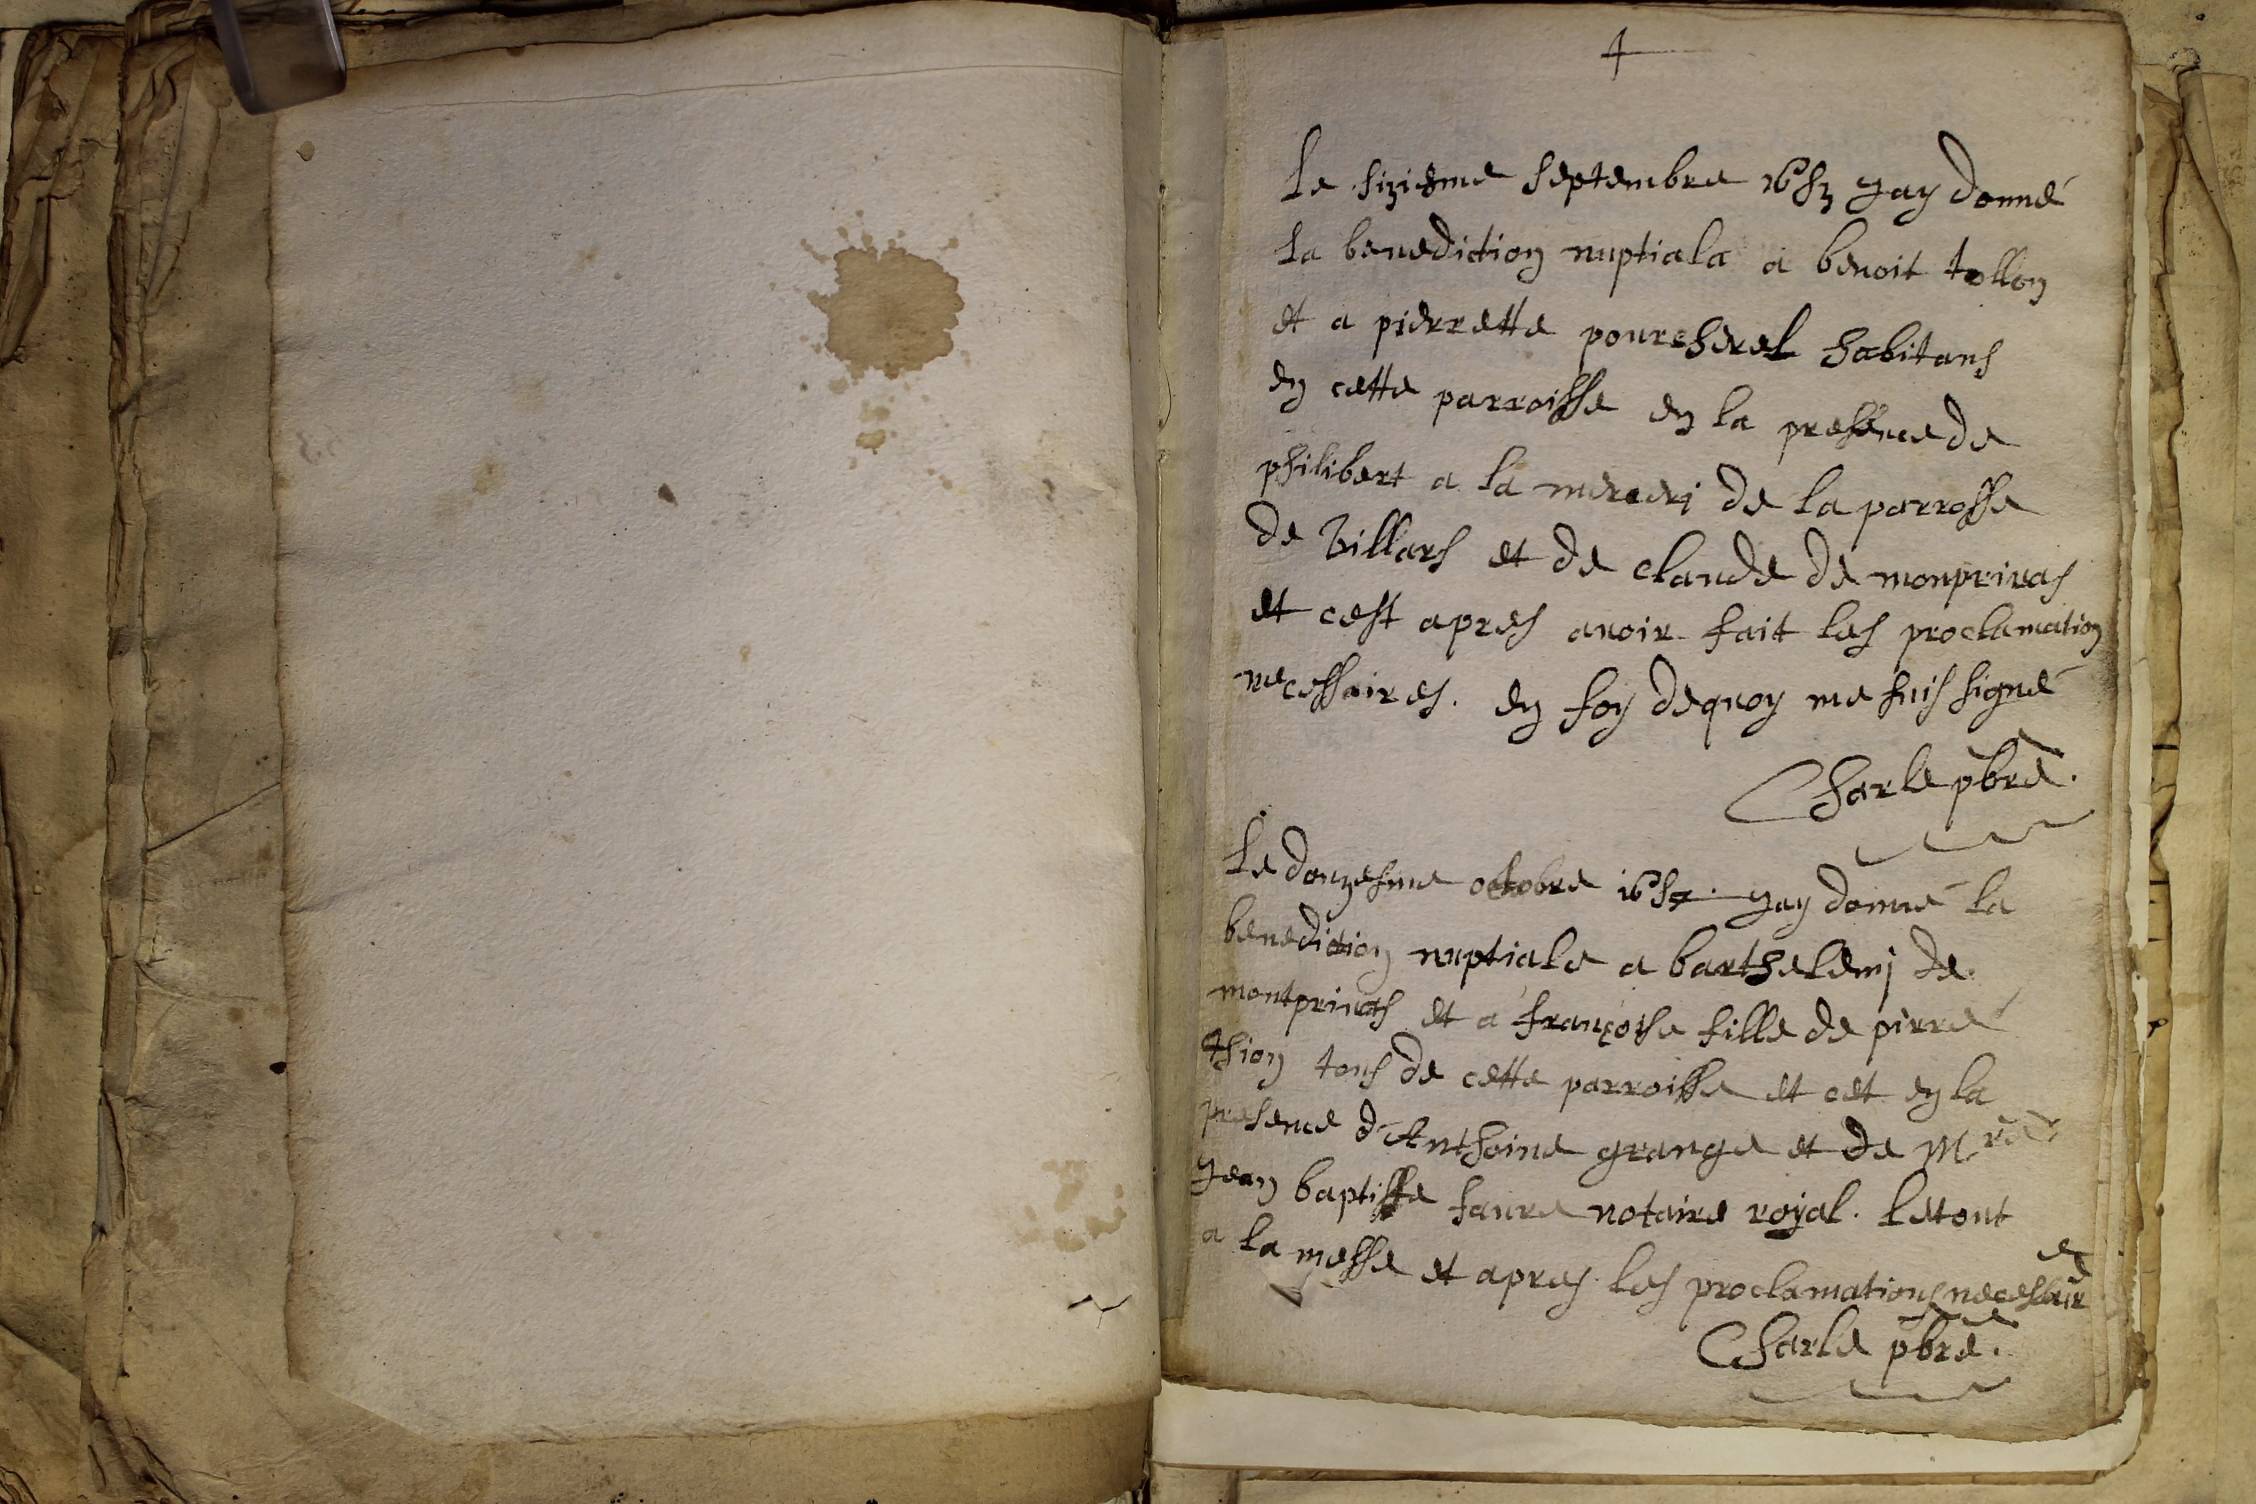 Le siziesme septembre 1653 Jay donné
la benediction nuptiala a benoit tollon
et a pierrette pourcherel habitans
en cette parroisse en la presence de
philibert a la merceri de la parrosse
de Villars et de claude de monprivas
et cest apres avoir fait les proclamation
necessaires. en foy dequoy me suis signé
Charle pbre.
Le douzesme octobre Jay donné la
benediction nuptiale a barthelemj de
montprivas et a françoise fille de pirre
thion tous de cette parroisse et cet en la
presence d'Anthoine grange et de Mre
Jean baptiste faure notaire royal. letout
a la messe et apres les proclamations necessaires
Charle pbre.